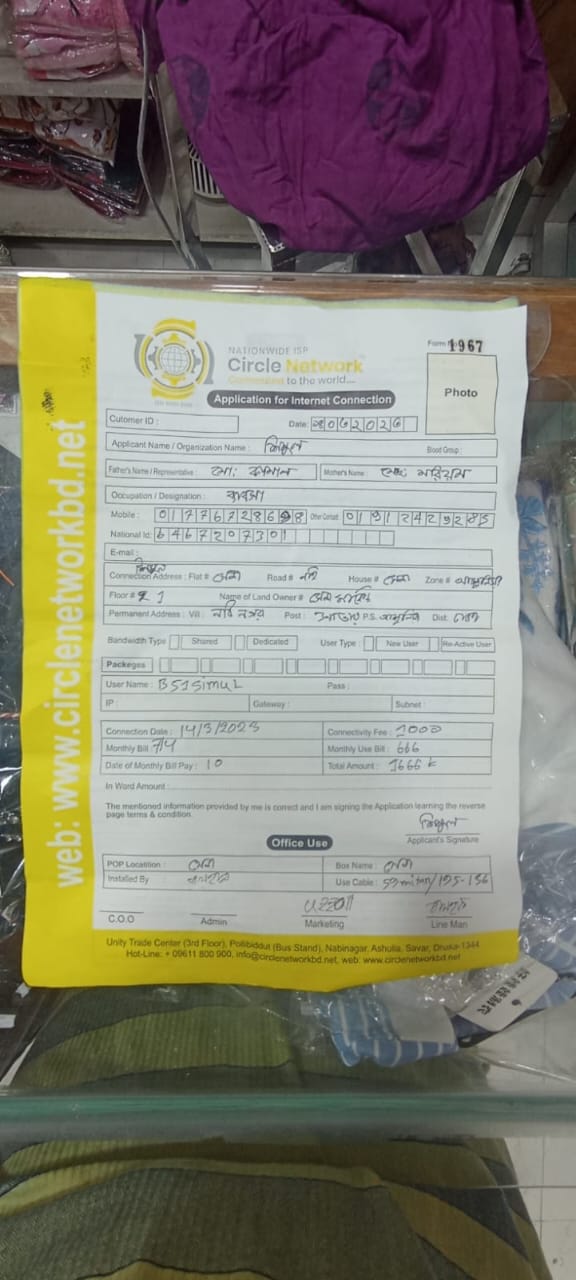 NATIONWIDE ISP
Circle Network
Connected to the world...
Form 1967
Photo
Application for Internet Connection
Cutomer ID :
Date:
Applicant Name / Organization Name : শিমুল
Boot Group :
Father's Name / Representative : মো: কামাল Mother's Name : মরিয়ম
Occupation / Designation : ব্যবসা
Mobile : 01776728698 Other Contact : 01912429285
National Id: 6467207301
E-mail :
Connection Address : Flat # Road # House # Zone #
Floor # 1 Name of Land Owner #
Permanent Address : Vill : নবি নগর Post : P.S. Dist.
Bandwidth Type Shared Dedicated User Type : New User Re-Active User
Packeges
User Name : BS1Simul Pass :
IP : Gateway : Subnet :
Connection Date : 14/3/2023 Connectivity Fee : 1000
Monthly Bill Monthly Use Bill : 666
Date of Monthly Bill Pay : 10 Total Amount : 1666
In Word Amount :
The mentioned information provided by me is correct and I am signing the Application learning the reverse
page terms & condition.
শিমুল
Applicant's Signature
Office Use
POP Locatition : Box Name :
Installed By Use Cable :
C.O.O Admin Marketing Line Man
Unity Trade Center (3rd Floor), Pollibiddut (Bus Stand), Nabinagar, Ashulia, Savar, Dhaka-1344
Hot-Line: + 09611 800 900, info@circlenetworkbd.net, web: www.circlenetworkbd.net
web: www.circlenetworkbd.net